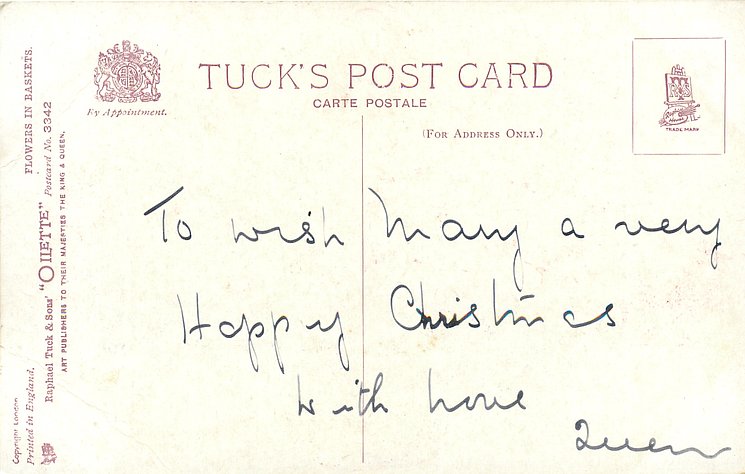 TUCK'S POST CARD
CARTE POSTALE
(FOR ADDRESS ONLY.)
By Appointment.
TRADE MARK
FLOWERS IN BASKETS.
Raphael Tuck & Sons' "OILETTE" Postcard No. 3342
ART PUBLISHERS TO THEIR MAJESTIES THE KING & QUEEN.
Copyright London
Printed in England.
To wish Mary a very
Happy Christmas
with love